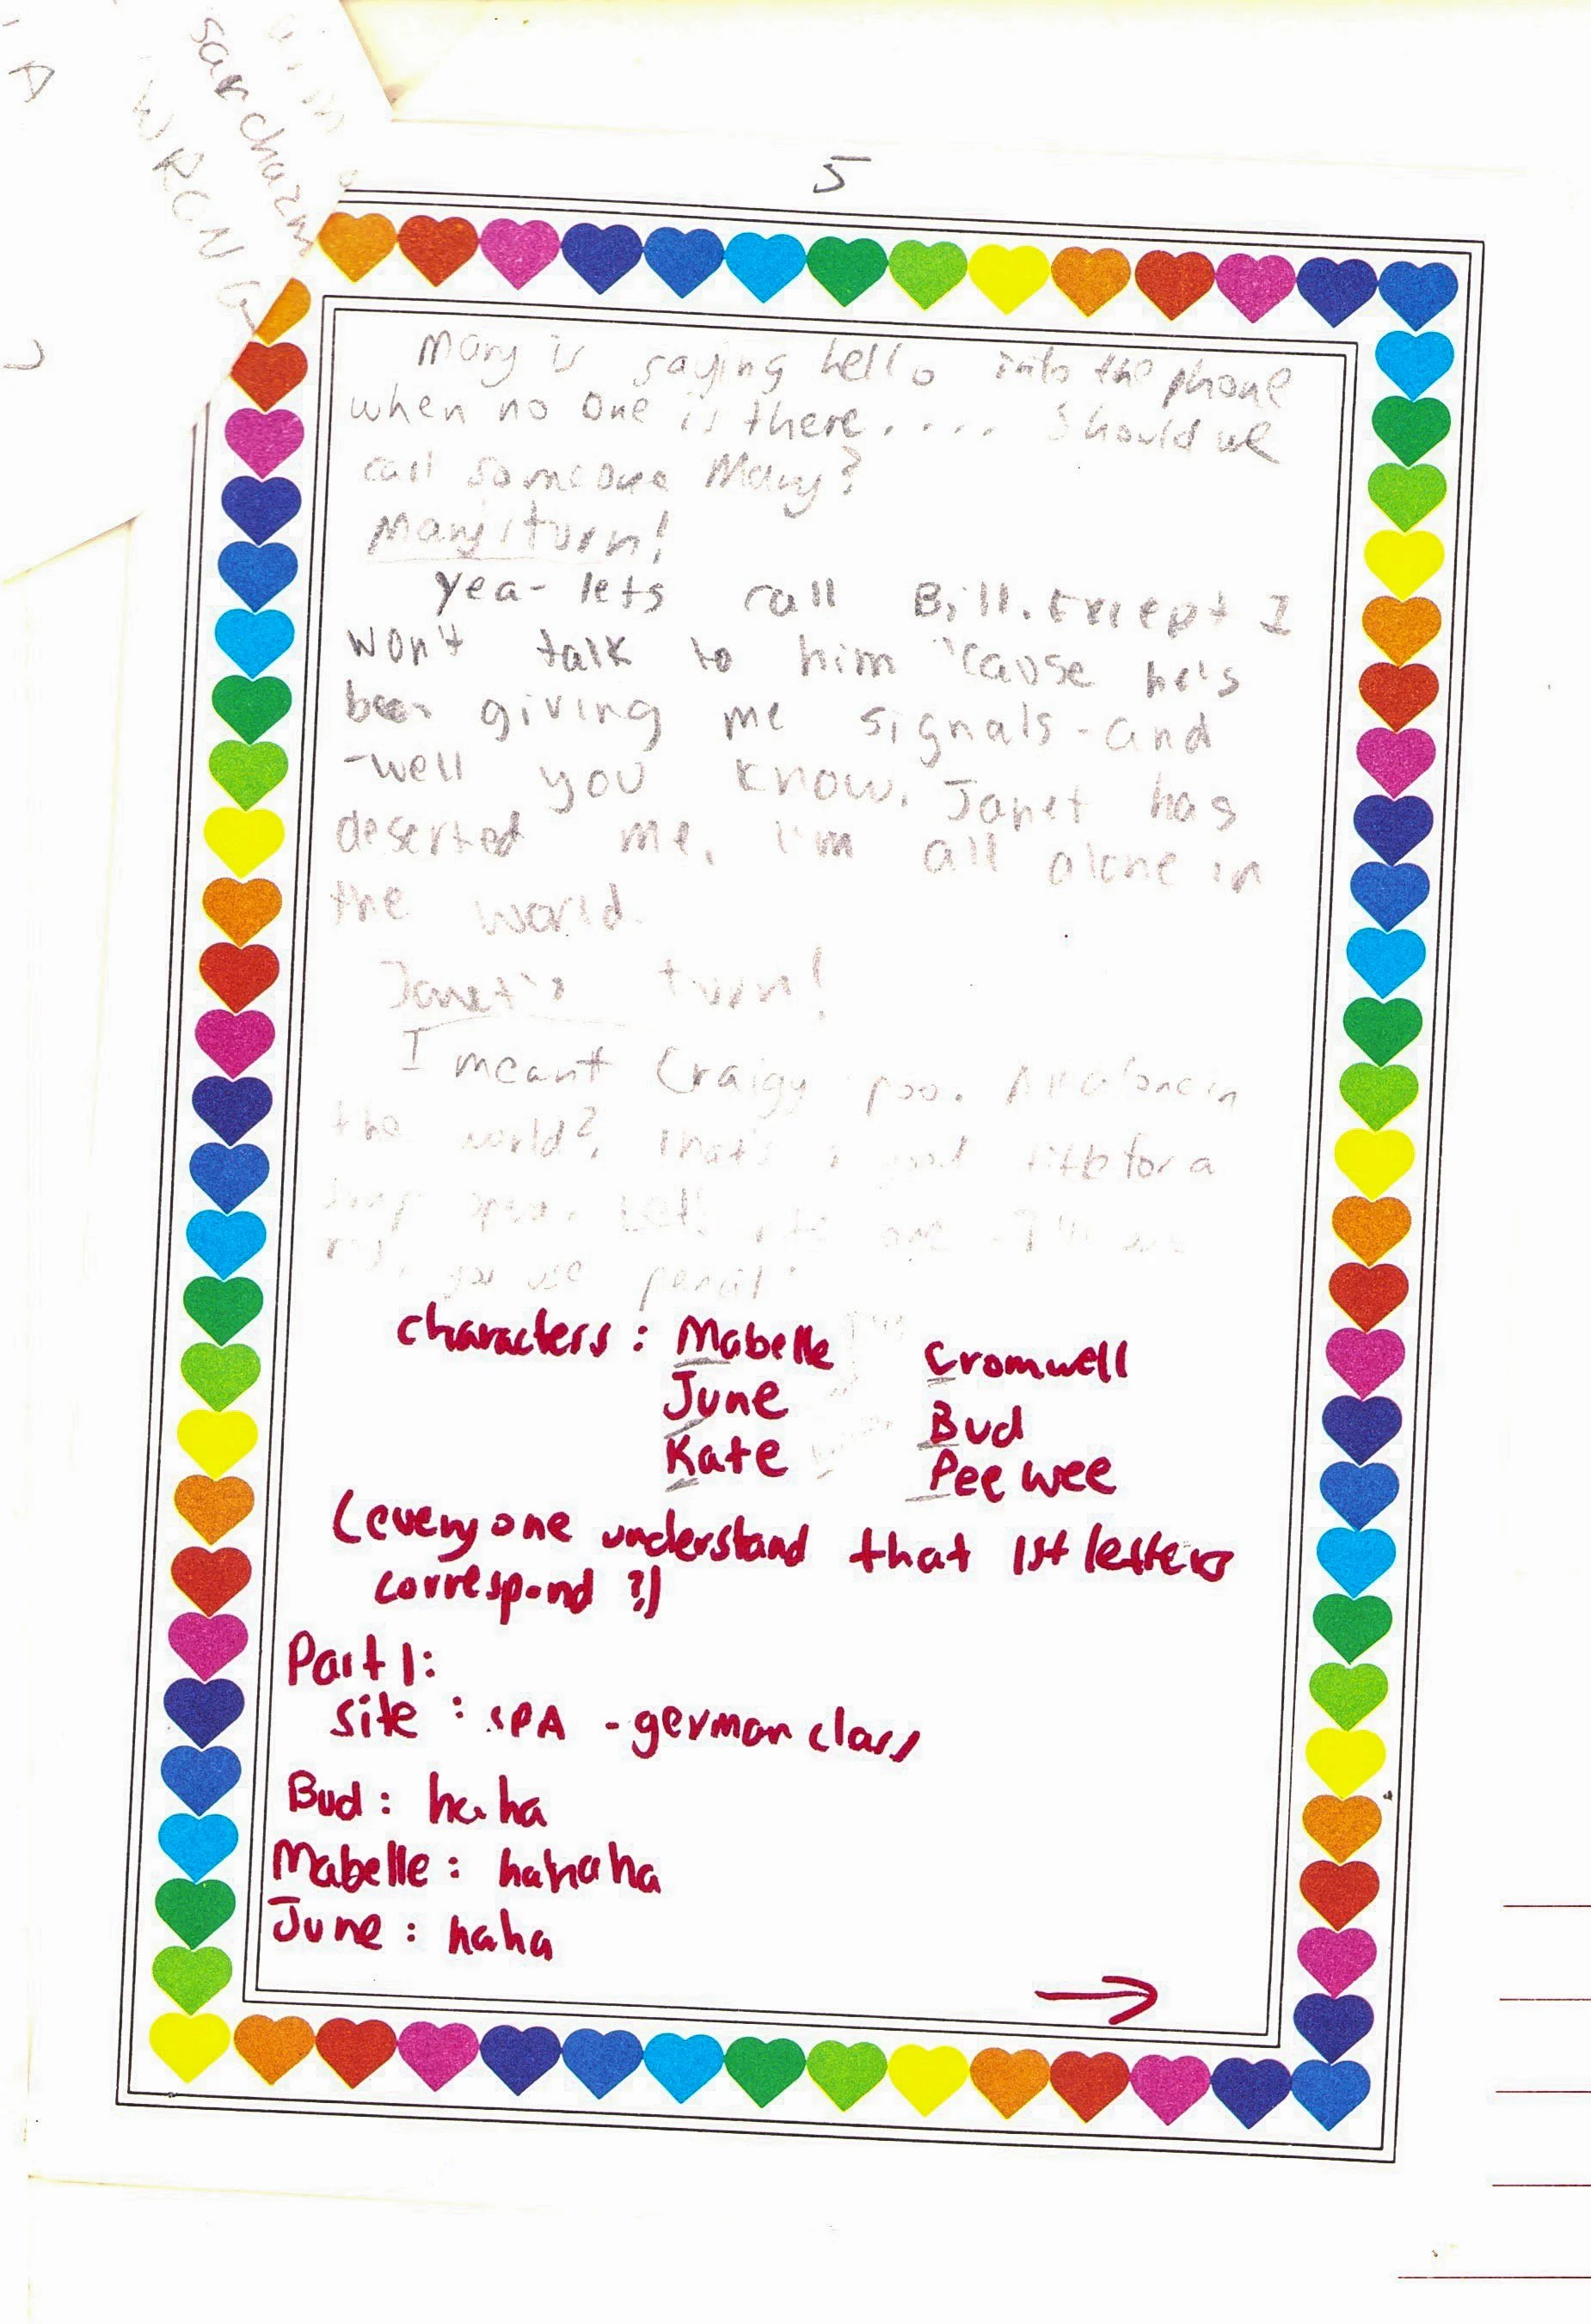 sarcharm
WRONG
5
Mary is saying hello into the phone
when no one is there.... Should we
call someone Mary?
Mary's turn!
Yea- lets call Bill. Except I
won't talk to him 'cause he's
been giving me signals - and
-well you know. Janet has
deserted me. I'm all alone in
the world.
Janet's turn!
I meant Craigy poo. All alone in
the world? That's a good title for a
soap opera. Let's write one - I'll use
red, you use pencil.
characters: Mabelle Cromwell
June Bud
Kate Pee wee
(everyone understand that 1st letters
correspond?)
Part 1:
site: SPA - german class
Bud: haha
Mabelle: hahaha
June: haha
→